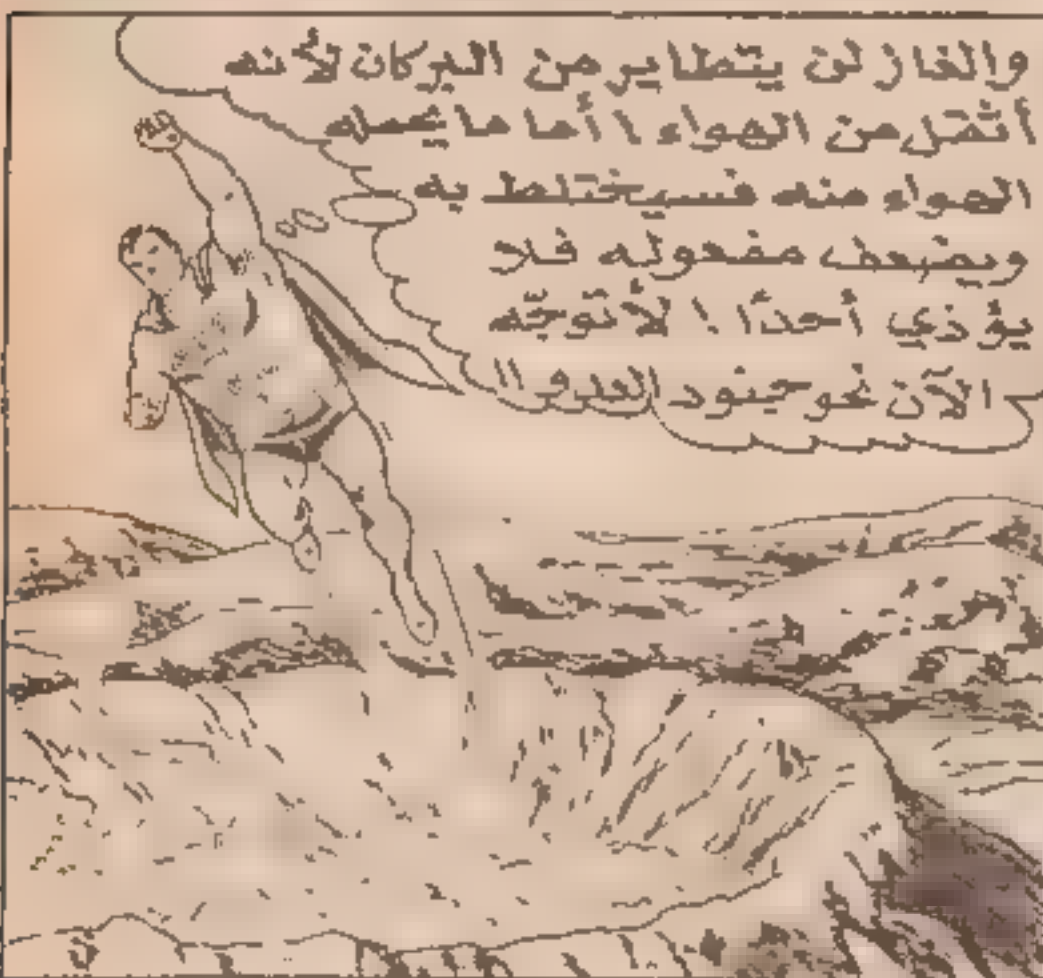 والغاز لن يتطاير من البركان لأنه
أثقل من الهواء ! أما ما يحمله
الهواء منه فسيختلط به
ويضعف مفعوله فلا
يؤذي أحدًا ! لأتوجّه
الآن نحو جنود العدو !!